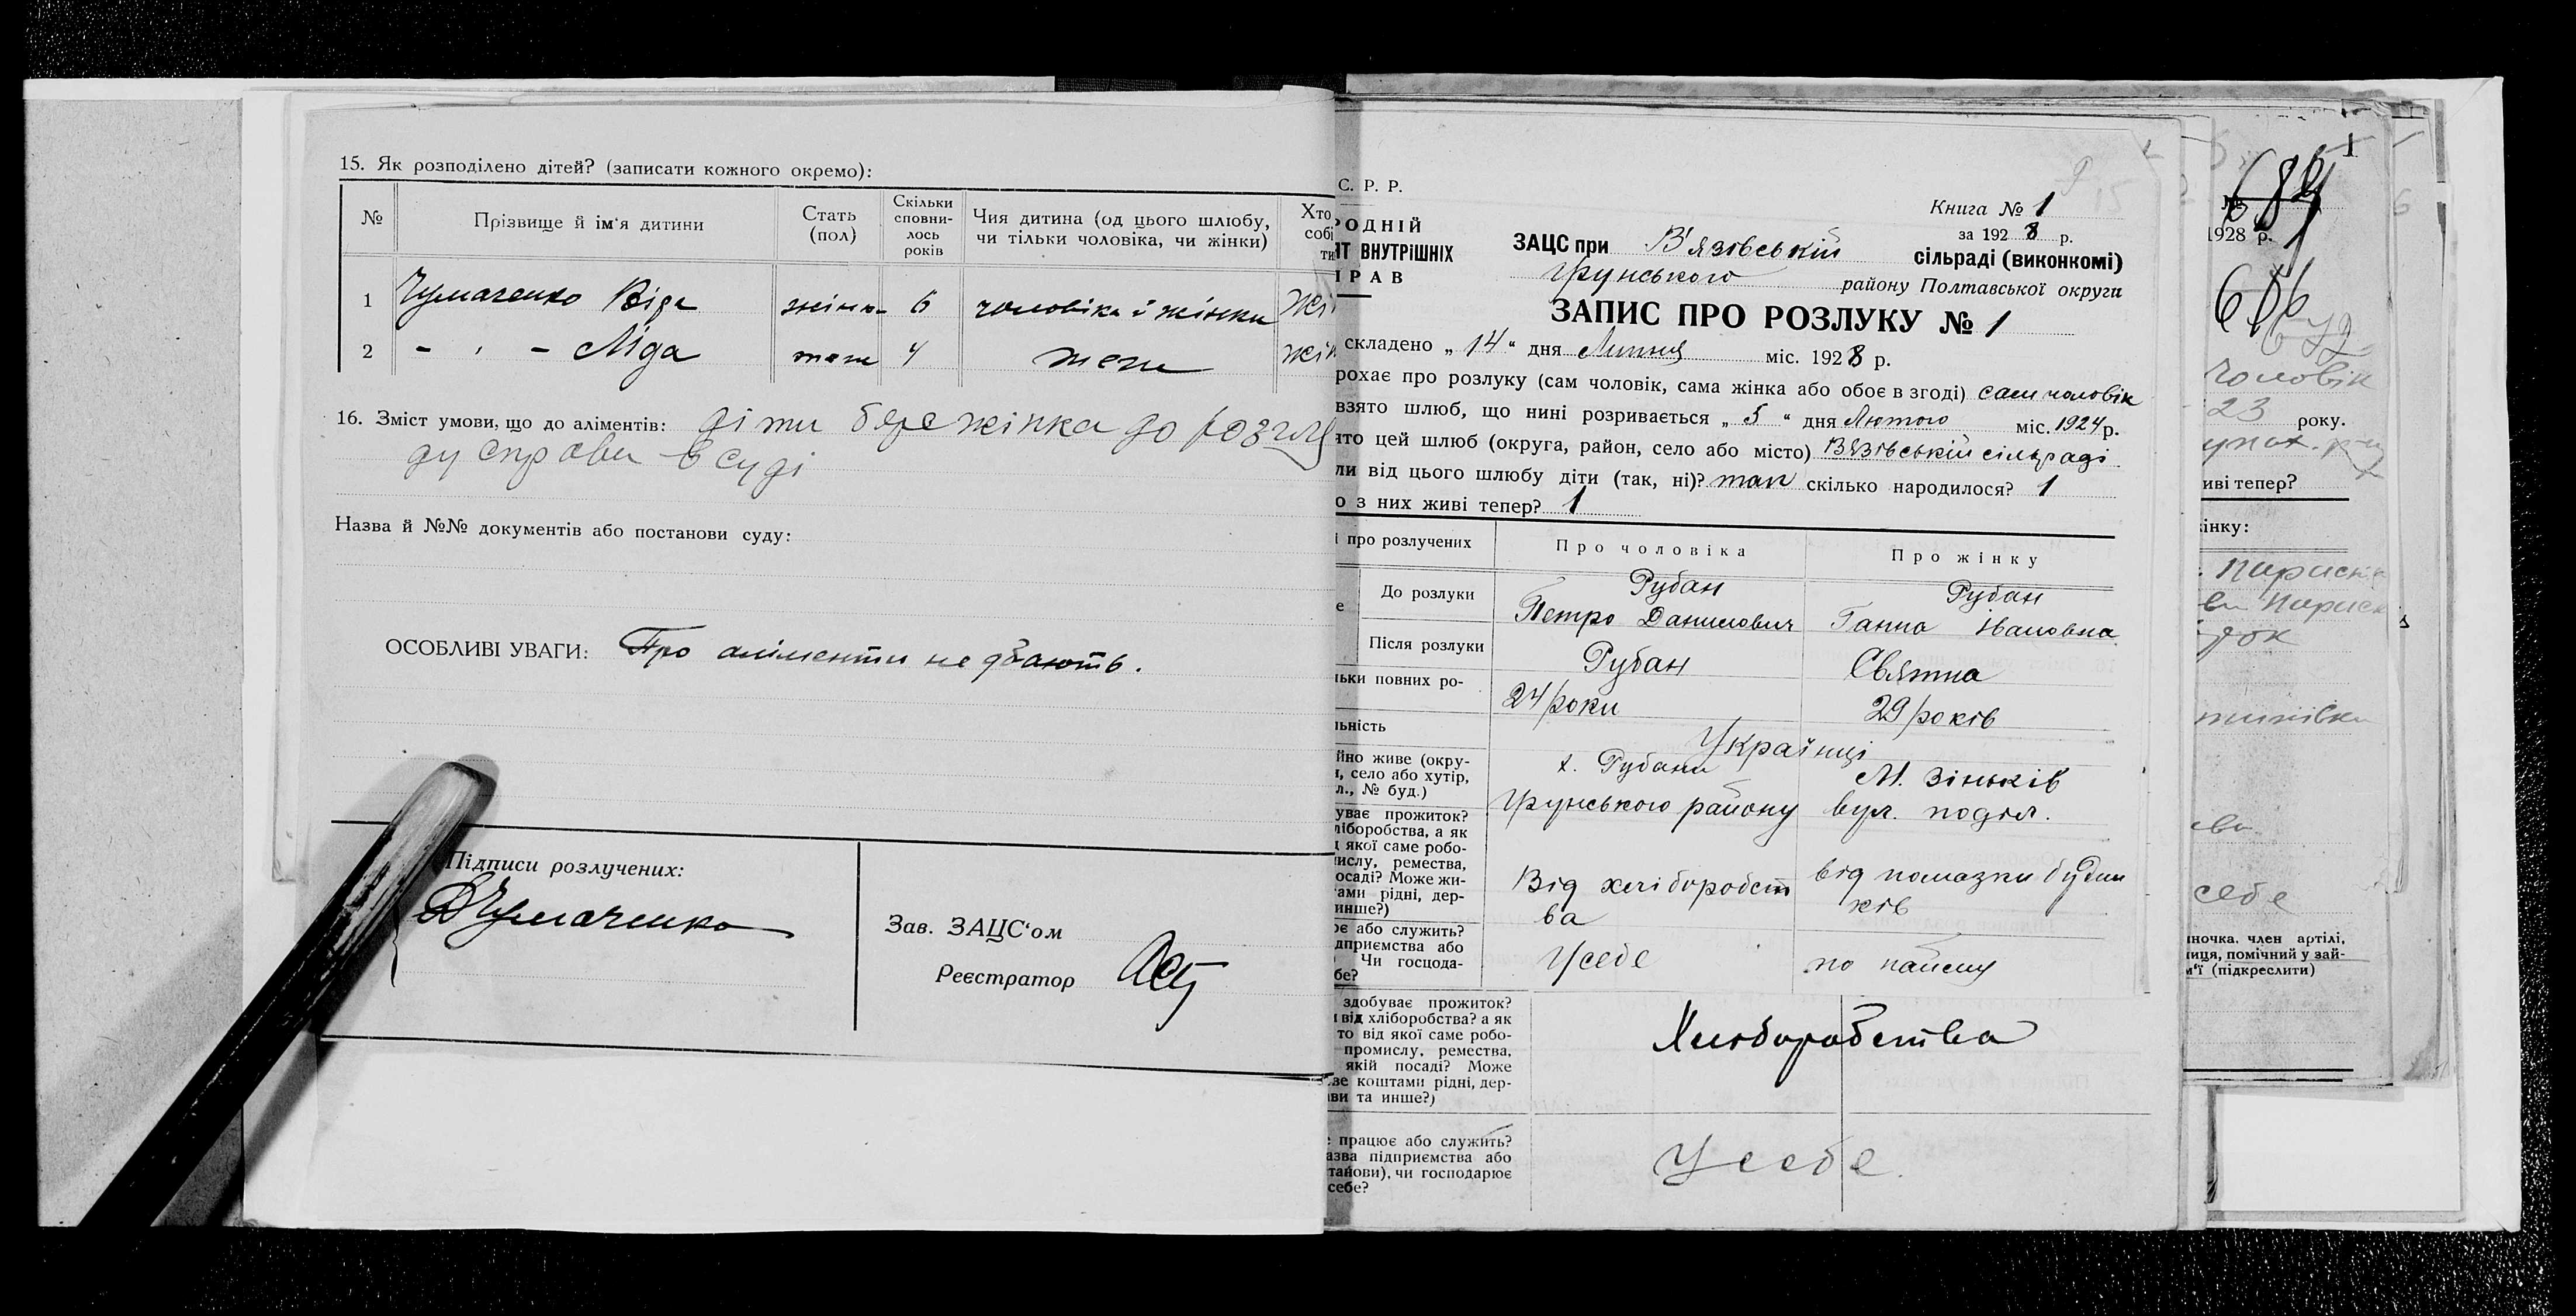 15. Як розподілено дітей? (записати кожного окремо):
№ Прізвище й ім'я дитини Стать (пол) Скільки сповни-лось років Чия дитина (од цього шлюбу, чи тільки чоловіка, чи жінки) Хто собі
1 Чумаченко Віра жіноч 6 чоловіка й жінки Жі
2 - „ - Ліда теж 4 теж жін
16. Зміст умови, що до аліментів: діти бере жінка до розгля
ду справи в суді
Назва й №№ документів або постанови суду:
ОСОБЛИВІ УВАГИ: Про аліменти не дбають.
Підписи розлучених:
Чумаченко
Зав. ЗАЦС'ом
Реєстратор
С. Р. Р.
РОДНІЙ
ІТ ВНУТРІШНІХ
ПРАВ
Книга № 1
за 1928 р.
ЗАЦС при В'язівській сільраді (виконкомі)
Грунського району Полтавської округи
ЗАПИС ПРО РОЗЛУКУ № 1
складено „ 14 “ дня Липня міс. 1928 р.
рохає про розлуку (сам чоловік, сама жінка або обоє в згоді) сам чоловік
взято шлюб, що нині розривається „ 5 “ дня Лютого міс. 1924 р.
ято цей шлюб (округа, район, село або місто) Вязівській сільраді
ли від цього шлюбу діти (так, ні)? так скілько народилося? 1
о з них живі тепер? 1
і про розлучених Про чоловіка Про жінку
До розлуки Рубан Рубан
Петро Данилович Ганна Івановна
Після розлуки Рубан Святна
льки повних ро- 24 роки 29 років
льність Українці
йно живе (окру- х. Рубани М. Зіньків
и, село або хутір,
л., № буд.) Грунського району вул. поділ.
уває прожиток?
ліборобства, а як
д якої саме робо-
мислу, ремества,
осаді? Може жи- Від хліборобст від помазки будин
ами рідні, дер- ва ків
инше?)
ює або служить?
дприємства або Усебе по найому
Чи господа-
бе?
здобуває прожиток?
и від хліборобства? а як
то від якої саме робо- Хліборобства
промислу, ремества,
якій посаді? Може
ве коштами рідні, дер-
ви та инше?)
працює або служить?
азва підприємства або Усебе.
танови), чи господарює
себе?
1
684
1928 р.
686
чоловік
23 року.
иві тепер?
інку:
док
себе
иночка, член артілі,
ниця, помічний у зай-
м'ї (підкреслити)